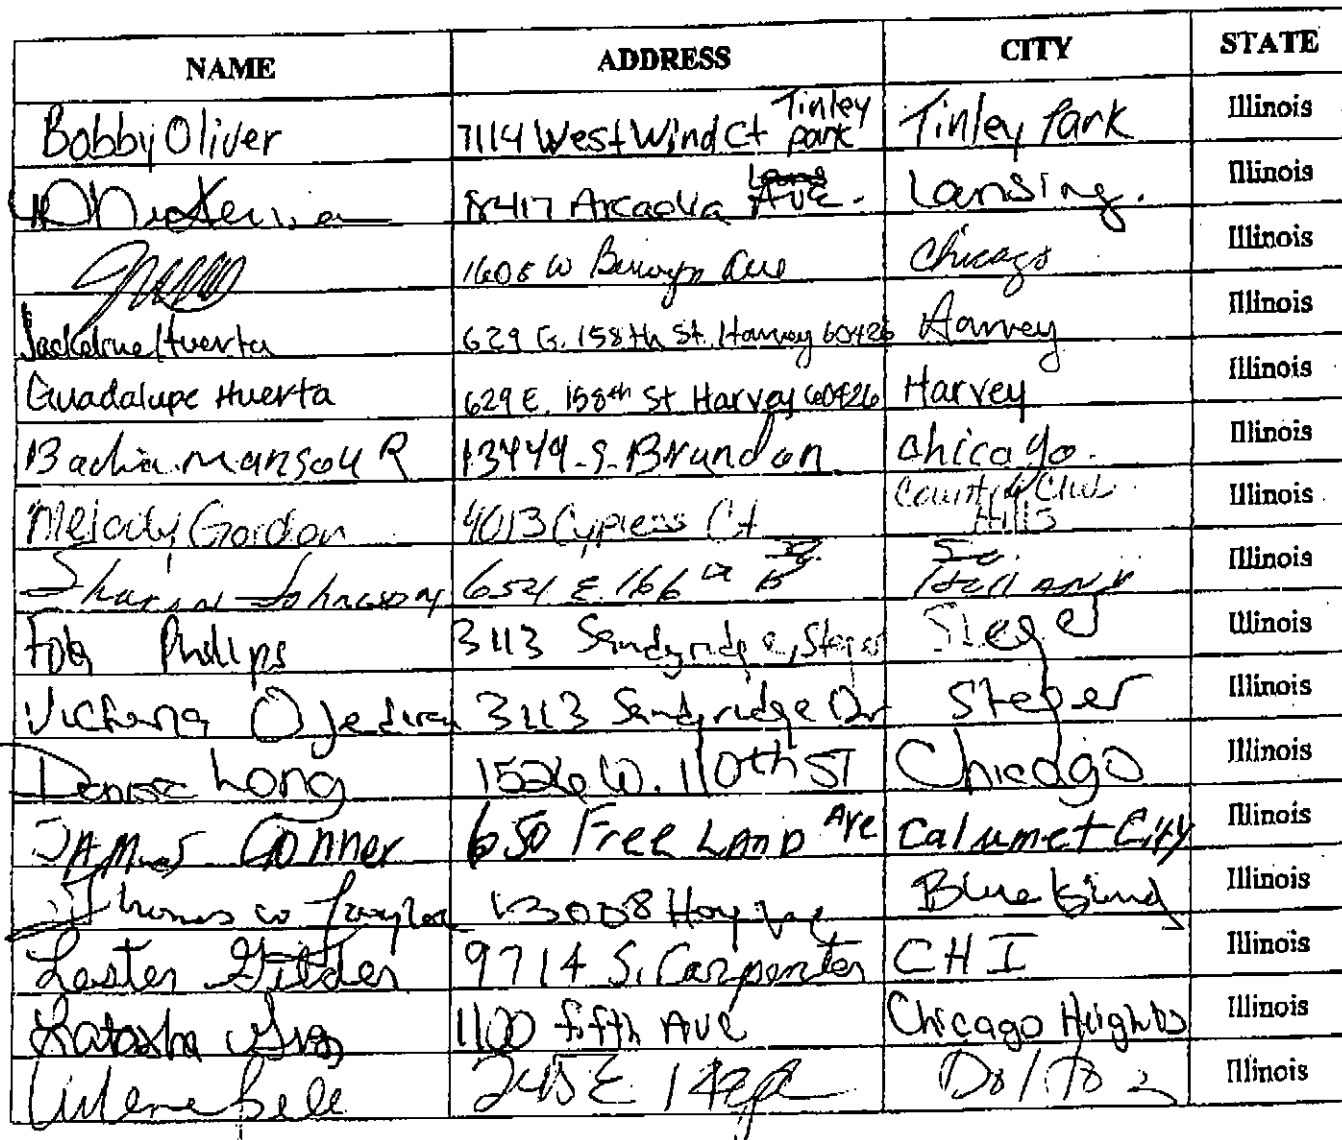 NAME ADDRESS CITY STATE
Bobby Oliver 7114 West Wind Ct Tinley Park Tinley Park Illinois
Arcadia Ave. Lansing. Illinois
1608 W Berwyn Ave Chicago Illinois
Jackeline Huerta 629 E. 158th St. Harvey 60426 Harvey Illinois
Guadalupe Huerta 629 E. 158th St Harvey 60426 Harvey Illinois
Badia mansouR 13449. S. Brandon chicago. Illinois
Melody Gordon 4013 Cypress Ct Country Club Hills Illinois
Sharon Johnson 6521 E. 166th So. Holland Illinois
Phillips 3113 Sandyridge, Steger Steger Illinois
3113 Sandyridge Dr Steger Illinois
Denise Long 1526 W. 110th ST Chicago Illinois
JAMES CONNer 650 Free LAND Ave Calumet City Illinois
Thomas W Taylor 13008 Hoyne Blue Island Illinois
Lester 9714 S. Carpenter CHI Illinois
Latasha 1100 fifth Ave Chicago Heights Illinois
245 E Dolton Illinois